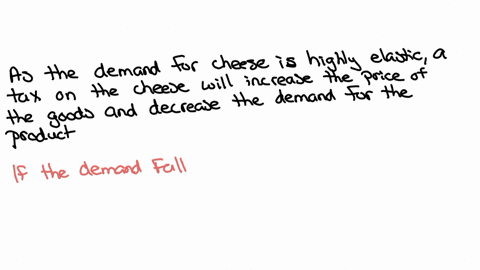 As the demand for cheese is highly elastic, a
tax on the cheese will increase the price of
the goods and decrease the demand for the
product
If the demand Fall